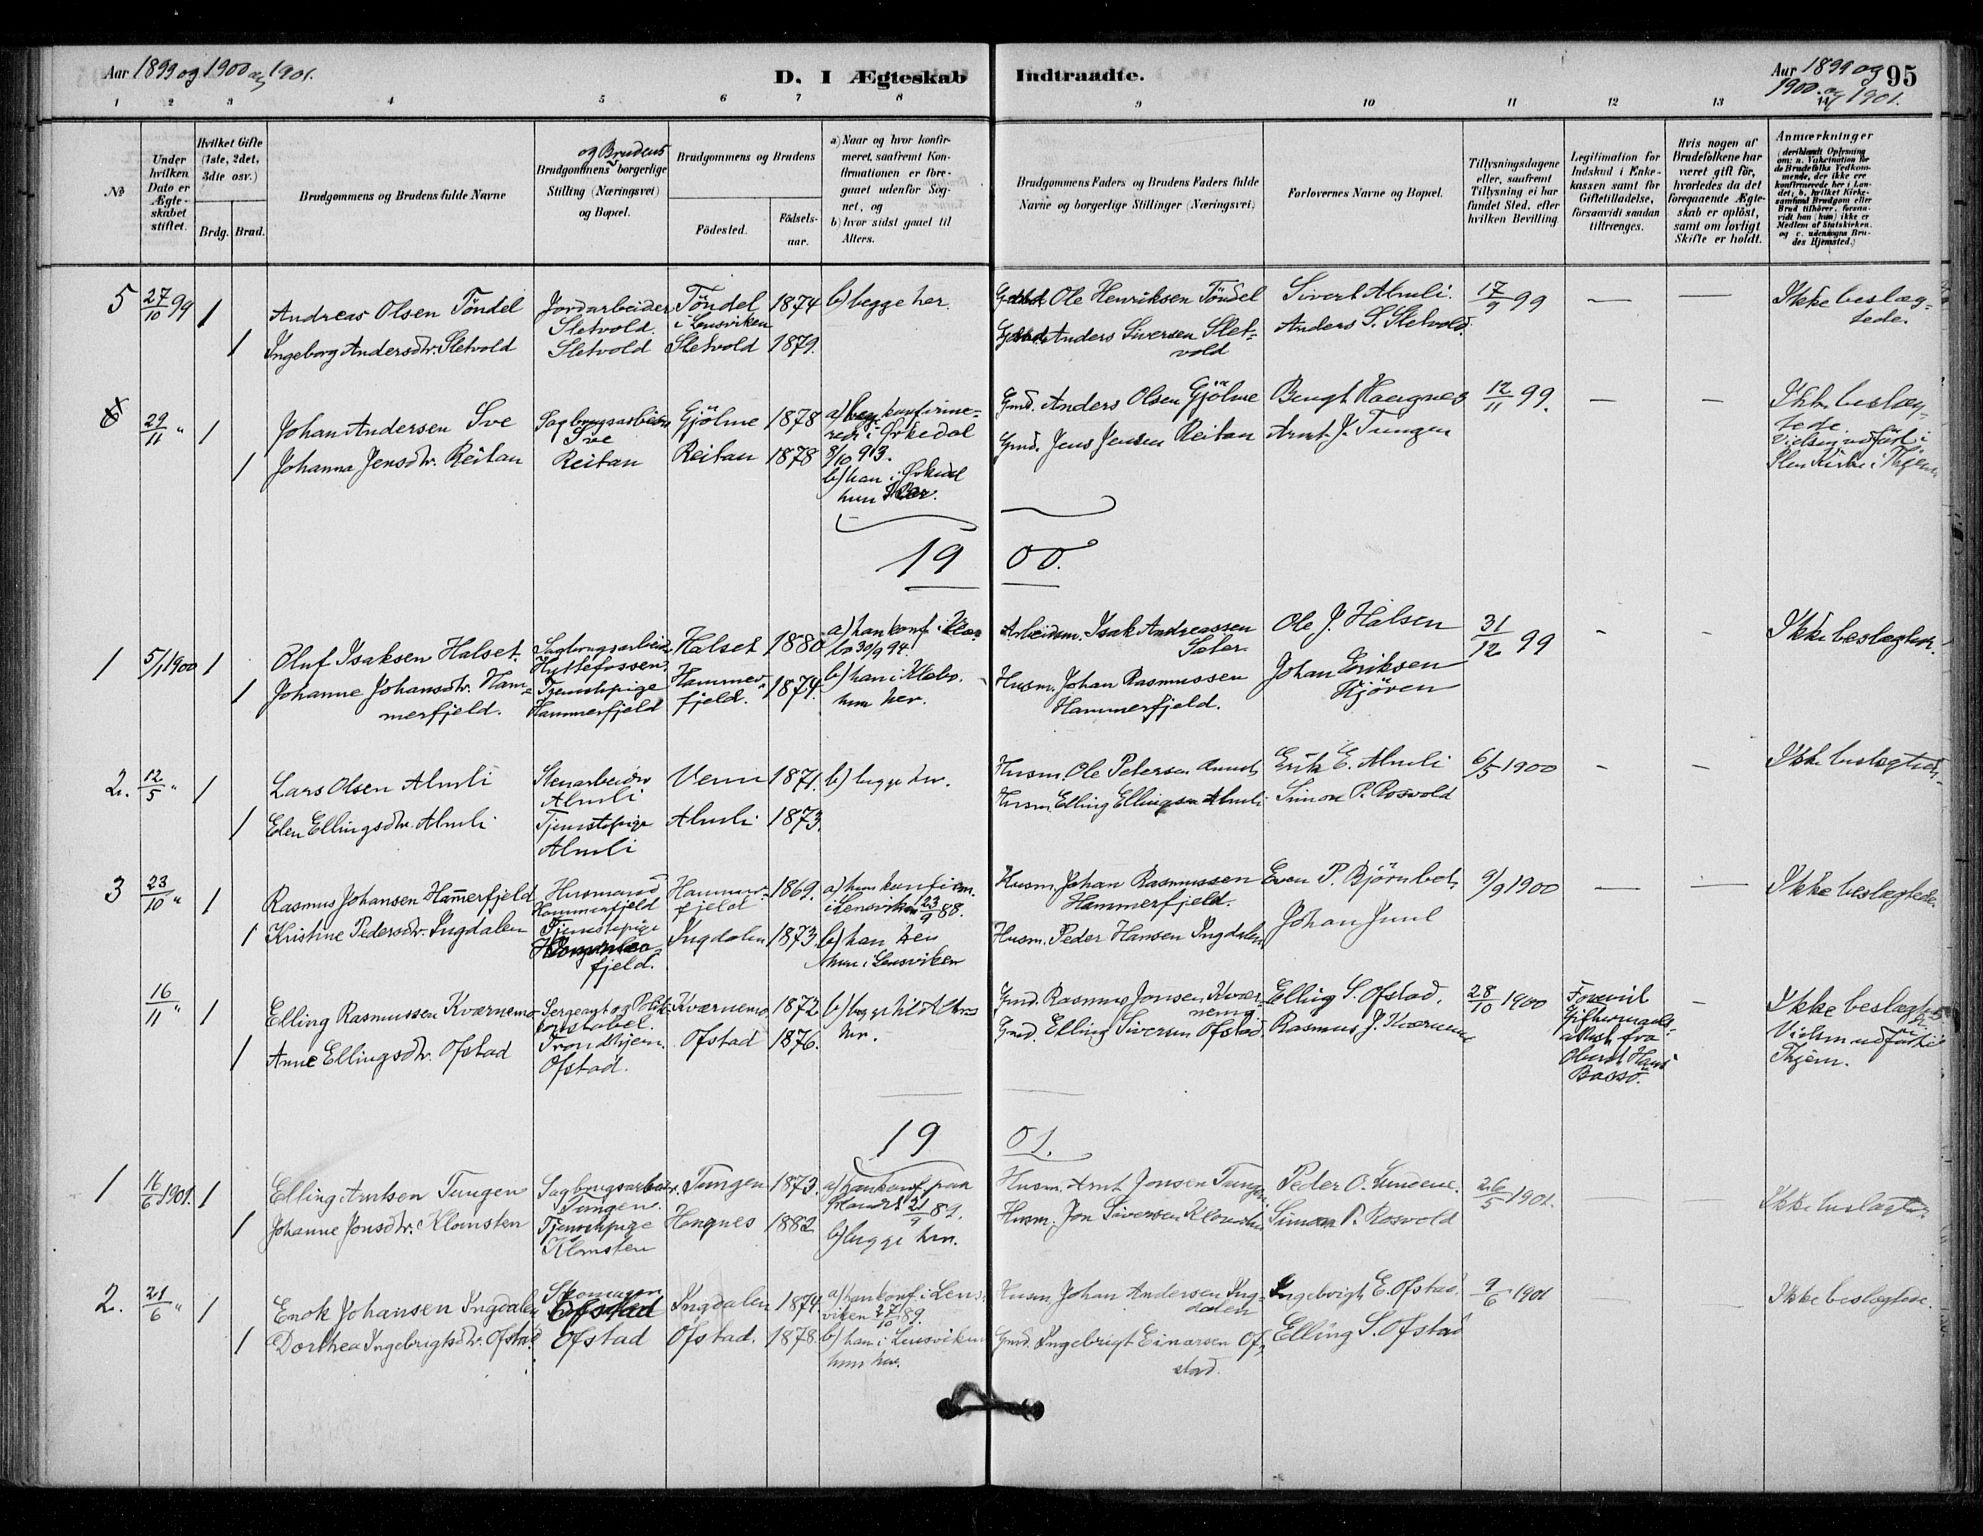 Aar 1899 og 1900 og 1901.
D. I Ægteskab Indtraadte.
Aar 1899 og 1900 og 1901. 95
1 2 3 4 5 6 7 8 9 10 11 12 13 14
No
Under hvilken Dato er Ægteskabet stiftet.
Hvilket Gifte (1ste, 2det, 3die osv.)
Brdg. Brud.
Brudgommens og Brudens fulde Navne
og Brudens
Brudgommens borgerlige Stilling (Næringsvei) og Bopæl.
Brudgommens og Brudens
Födested.
Födselsaar.
a) Naar og hvor konfirmeret, saafremt Konfirmationen er foregaaet udenfor Sognet, og
b) hvor sidst gaaet til Alters.
Brudgommens Faders og Brudens Faders fulde Navne og borgerlige Stillinger (Næringsvei)
Forlovernes Navne og Bopæl.
Tillysningsdagene eller, saafremt Tillysning ei har fundet Sted, efter hvilken Bevilling
Legitimation for Indskud i Enkekassen samt for Giftetilladelse, forsaavidt saadan tiltrænges.
Hvis nogen af Brudefolkene har været gift för, hvorledes da det foregaaende Ægteskab er oplöst, samt om lovligt Skifte er holdt.
Anmærkninger
5 27/10 99 1 Andreas Olsen Töndel Jordarbeider Sletvold. Töndel i Lensviken 1874 b) begge her. Ole Henriksen Töndel Sivert Almli. 17/9 99 — — Ikke beslægtede.
1 Ingeborg Andersdtr. Sletvold Sletvold Sletvold 1879. Anders Siversen Sletvold Anders S. Sletvold.
6 29/11 " 1 Johan Andersen Sve Sagbrugsarbeider Sve Gjölme 1878 a) konfirmeret i Orkedal 8/10 93. Gmd. Anders Olsen Gjölme Bengt Haugnes 12/11 99. — — Ikke beslægtede. Vielsen udført i Ilen Kirke i Thjem
1 Johanna Jensdtr. Reitan Reitan Reitan 1878 b) han i Orkedal hun her. Gmd. Jens Jensen Reitan Arnt J. Tungen
19 00.
1 5/1 1900 1 Oluf Isaksen Halset. Sagbrugsarbeider Hyttefossen Halset 1880 a) han konf. i Klæbo 30/9 94. Arbeidsm. Isak Andreassen Sæter Ole J. Halsen 31/12 99 - - Ikke beslægtede.
1 Johanne Johansdtr. Hammerfjeld. Tjenestepige Hammerfjeld Hammerfjeld. 1874. b) han i Klæbo. hun her. Husm. Johan Rasmussen Hammerfjeld. Johan Eriksen Kjören
2. 12/5 " 1 Lars Olsen Almli Stenarbeider Almli Venn 1871. b) begge her. Husm. Ole Petersen Erik E. Almli 6/5 1900 - - Ikke beslægtede.
1 Elen Ellingsdtr. Almli Tjenestepige Almli Almli 1873. Husm. Elling Ellingsen Almli Simon P. Rosvold
3 23/10 " 1 Rasmus Johansen Hammerfjeld Husmand Hammerfjeld Hammerfjeld 1869. a) hun konfirm. i Lensviken 23/9 88. Husm. Johan Rasmussen Hammerfjeld. Even P. Björnbet 9/9 1900 — — Ikke beslægtede
1 Kristine Pedersdtr. Ingdalen Tjenestepige fjeld. Ingdalen 1873. b) han her hun i Lensviken Husm. Peder Hansen Ingdalen Johan Juul
16/11 " 1 Elling Rasmussen Kværnemo Sergeant og Politikonstabel. Trondhjem. Kværnemo 1872 b) begge til Alters her. Gmd. Rasmus Jonsen Kværnemo Elling S. Ofstad. 28/10 1900 Forevist Giftermaalsattest fra Oberst Hans Basso. - Ikke beslægtede Vielsen udført i Thjem.
1 Anne Ellingsdtr. Ofstad Ofstad. Ofstad 1876. Gmd. Elling Siversen Ofstad. Rasmus J. Kværnemo
19 01.
1 16/6 1901. 1 Elling Arntsen Tungen Sagbrugsarbeider. Tungen. Tungen 1873. a) han konf. paa Ørlandet 21/9 89. Husm. Arnt Jonsen Tungen Peder O. Sundene. 26/5 1901. Ikke beslægtede
1 Johanne Jonsdtr. Klomsten Tjenestepige Klomsten Haugnes 1882 b) begge her. Husm. Jon Siversen Klomsten Simon P. Rosvold
2. 21/6 " 1 Enok Johansen Ingdalen Skomager Ofstad Ingdalen 1874. a) han konf. i Lensviken 27/10 89. Husm. Johan Andersen Ingdalen Ingebrigt E. Ofstad. 9/6 1901 Ikke beslægtede.
1 Dorthea Ingebrigtsdtr. Ofstad. Ofstad Ofstad. 1878. b) han i Lensviken hun her. Gmd. Ingebrigt Einarsen Ofstad. Elling S. Ofstad